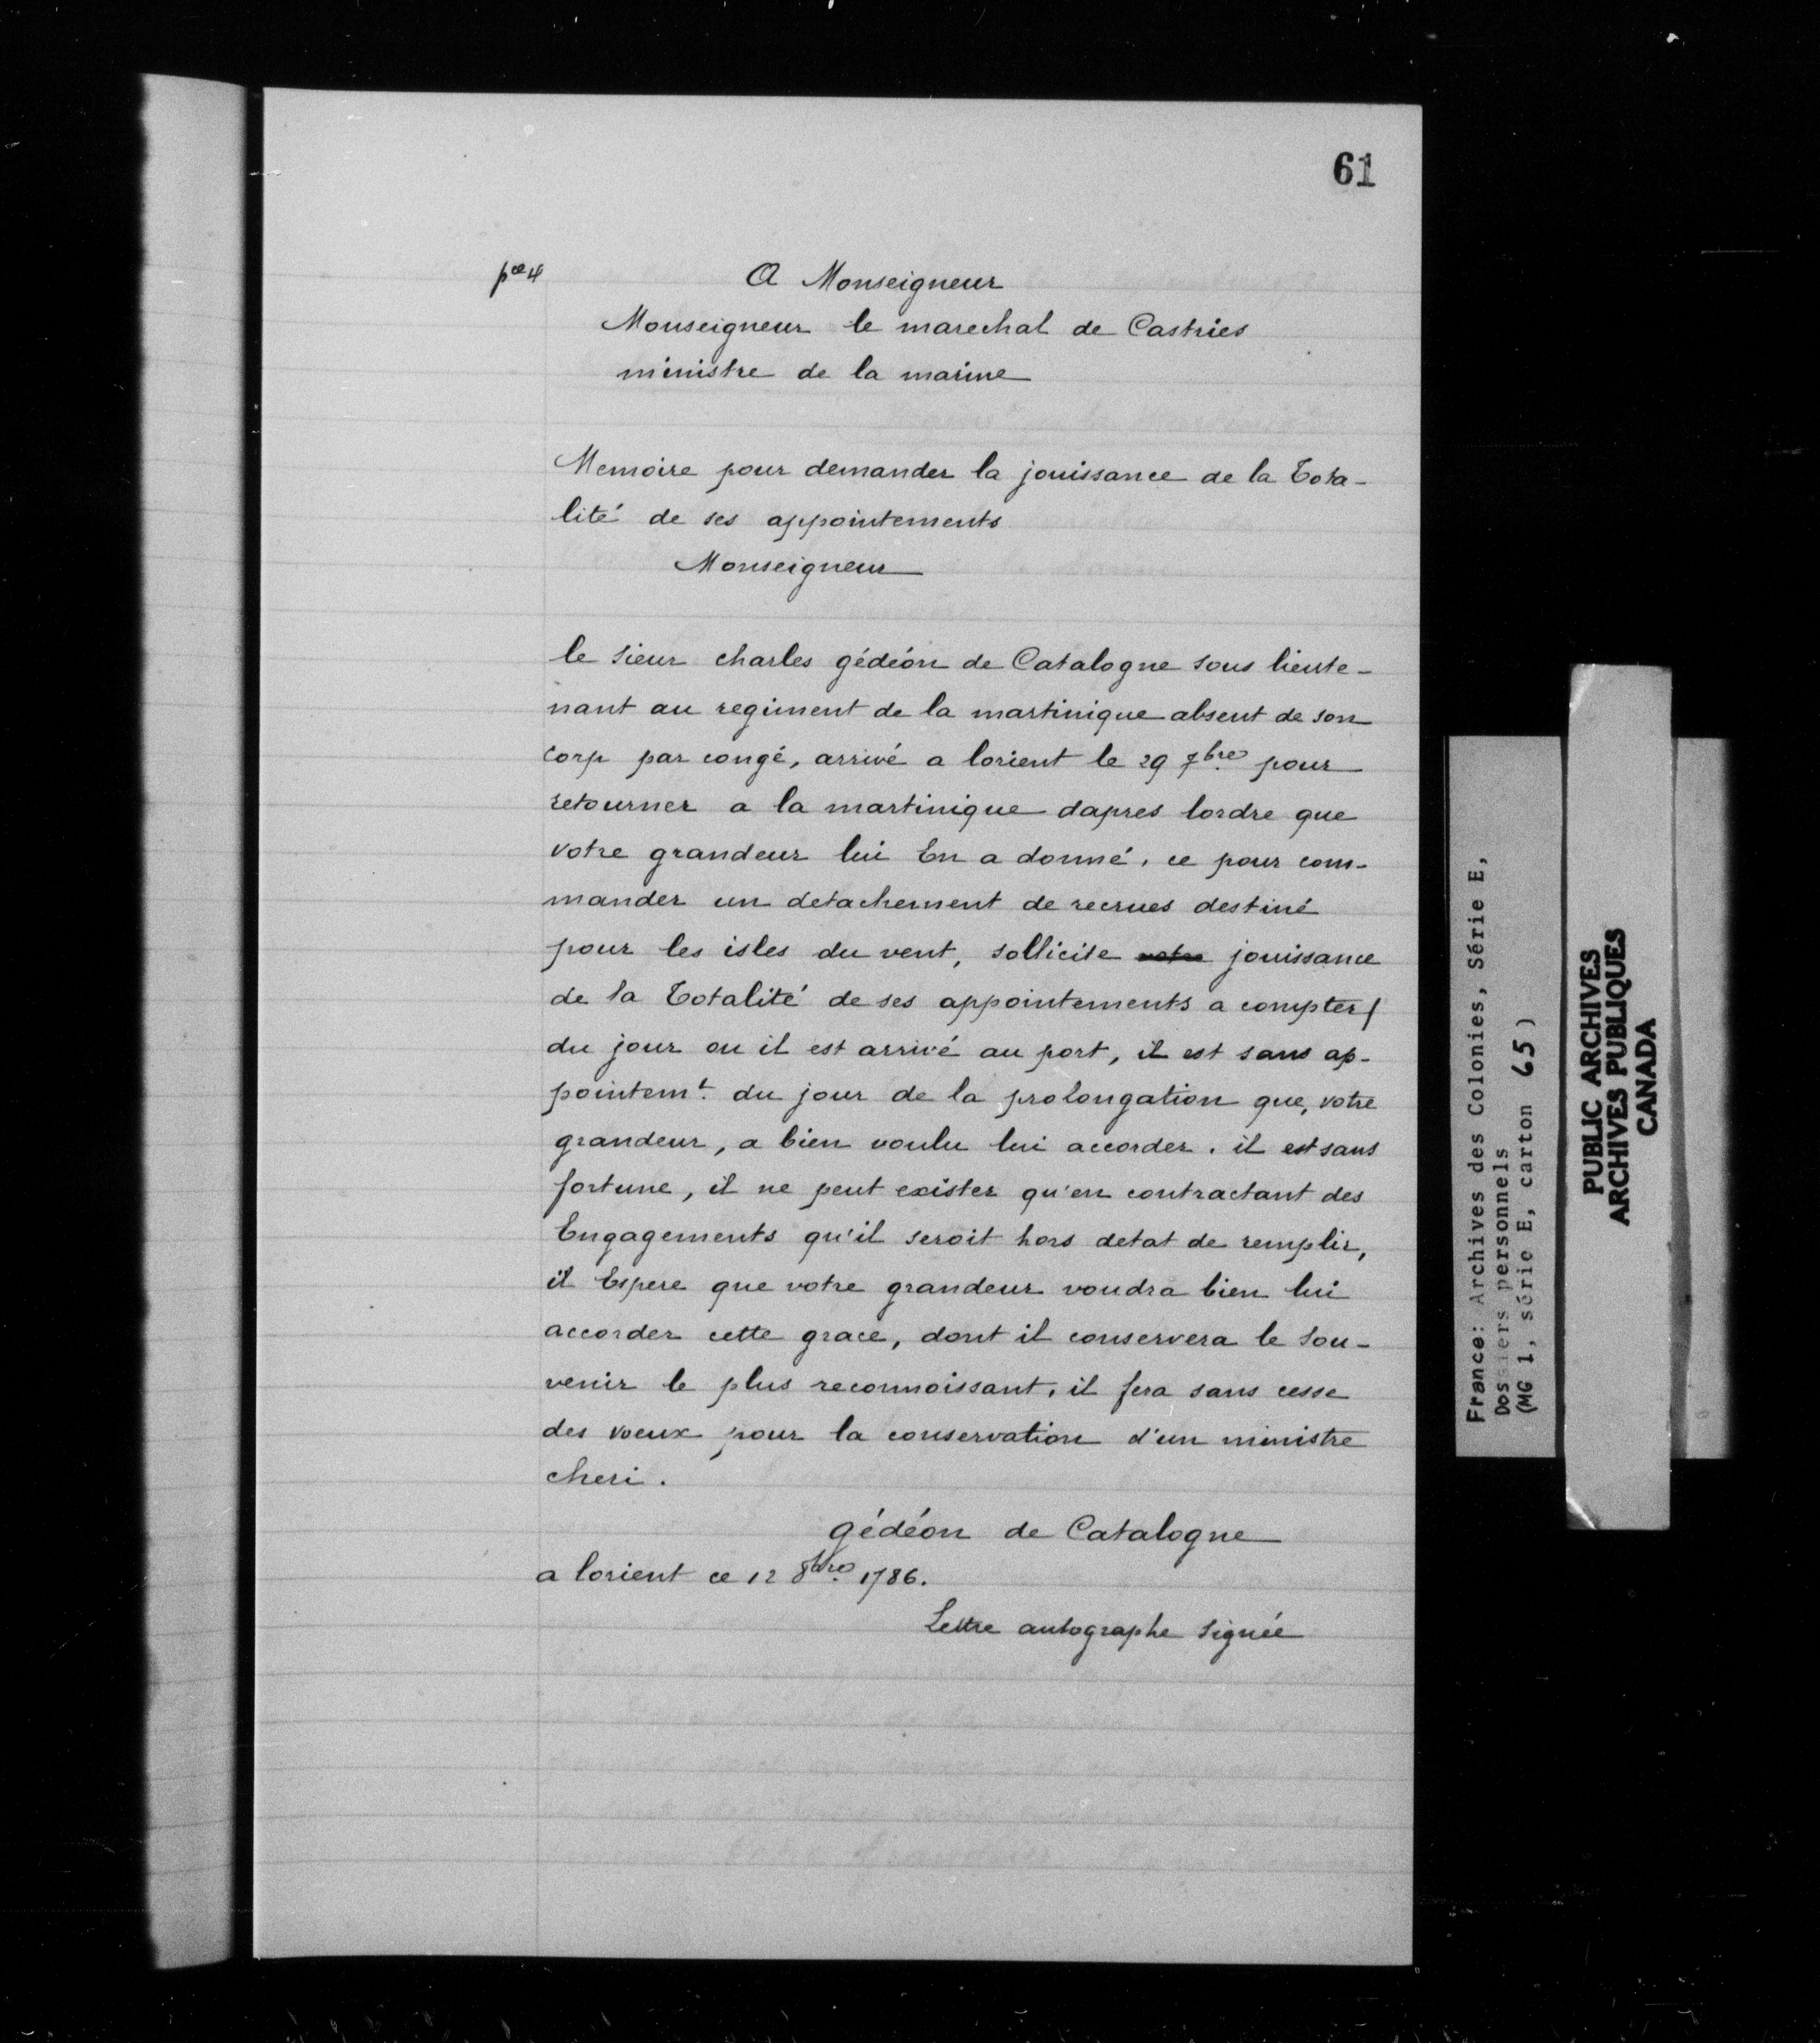 61
pce 4
A Monseigneur
Monseigneur le marechal de Castries
ministre de la marine
Memoire pour demander la jouissance de la Tota-
lité de ses appointements
Monseigneur
le sieur charles gédéon de Catalogne sous lieute-
nant au regiment de la martinique absent de son
corp par congé, arrivé a lorient le 29 7bre pour
retourner a la martinique dapres lordre que
votre grandeur lui En a donné, ce pour com-
mander un detachement de recrues destiné
pour les isles du vent, sollicite votre jouissance
de la Totalité de ses appointements a compter
du jour ou il est arrivé au port, il est sans ap-
pointemt. du jour de la prolongation que, votre
grandeur, a bien voulu lui accorder. il est sans
fortune, il ne peut exister qu'en contractant des
Engagements qu'il seroit hors detat de remplir,
il Espere que votre grandeur voudra bien lui
accorder cette grace, dont il conservera le sou-
venir le plus reconnoissant, il fera sans cesse
des voeux pour la conservation d'un ministre
cheri.
gédéon de Catalogne
a lorient ce 12 8bre. 1786.
Lettre autographe signée
France: Archives des Colonies, Série E,
Dossiers personnels
(MG 1, série E, carton 65)
PUBLIC ARCHIVES
ARCHIVES PUBLIQUES
CANADA